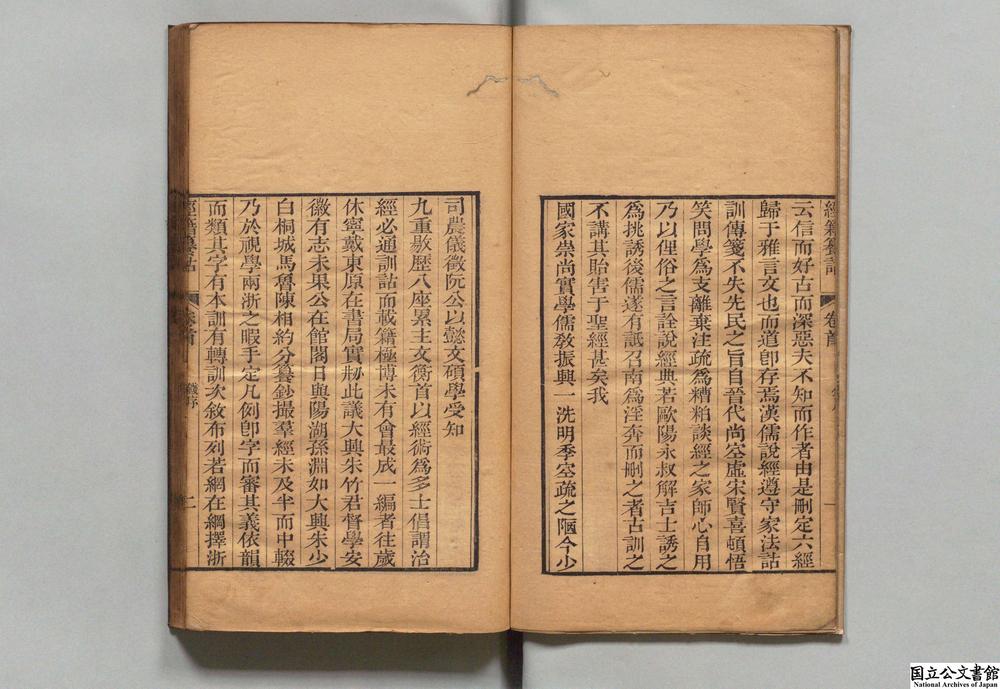 云信而好古而深惡夫不知而作者由是刪定六經
歸于雅言文也而道卽存焉漢儒說經遵守家法詁
訓傳箋不失先民之旨自晉代尚空虛宋賢喜頓悟
笑問學爲支離棄注疏爲糟粕談經之家師心自用
乃以俚俗之言詮說經典若歐陽永叔解吉士誘之
爲挑誘後儒遂有詆召南爲淫奔而刪之者古訓之
不講其貽害于聖經甚矣我
國家崇尚實學儒敎振興一洗明季空疏之陋今少
司農儀徵阮公以懿文碩學受知
九重敭歷八座累主文衡首以經術爲多士倡謂治
經必通訓詁而載籍極博未有會最成一編者往歲
休寧戴東原在書局實刱此議大興朱竹君督學安
徽有志未果公在館閣日與陽湖孫淵如大興朱少
白桐城馬魯陳相約分纂鈔撮羣經未及半而中輟
乃於視學兩浙之暇手定凡例卽字而審其義依韻
而類其字有本訓有轉訓次敘布列若網在綱擇浙
經籍籑詁 卷首 錢序 二
国立公文書館
National Archives of Japan